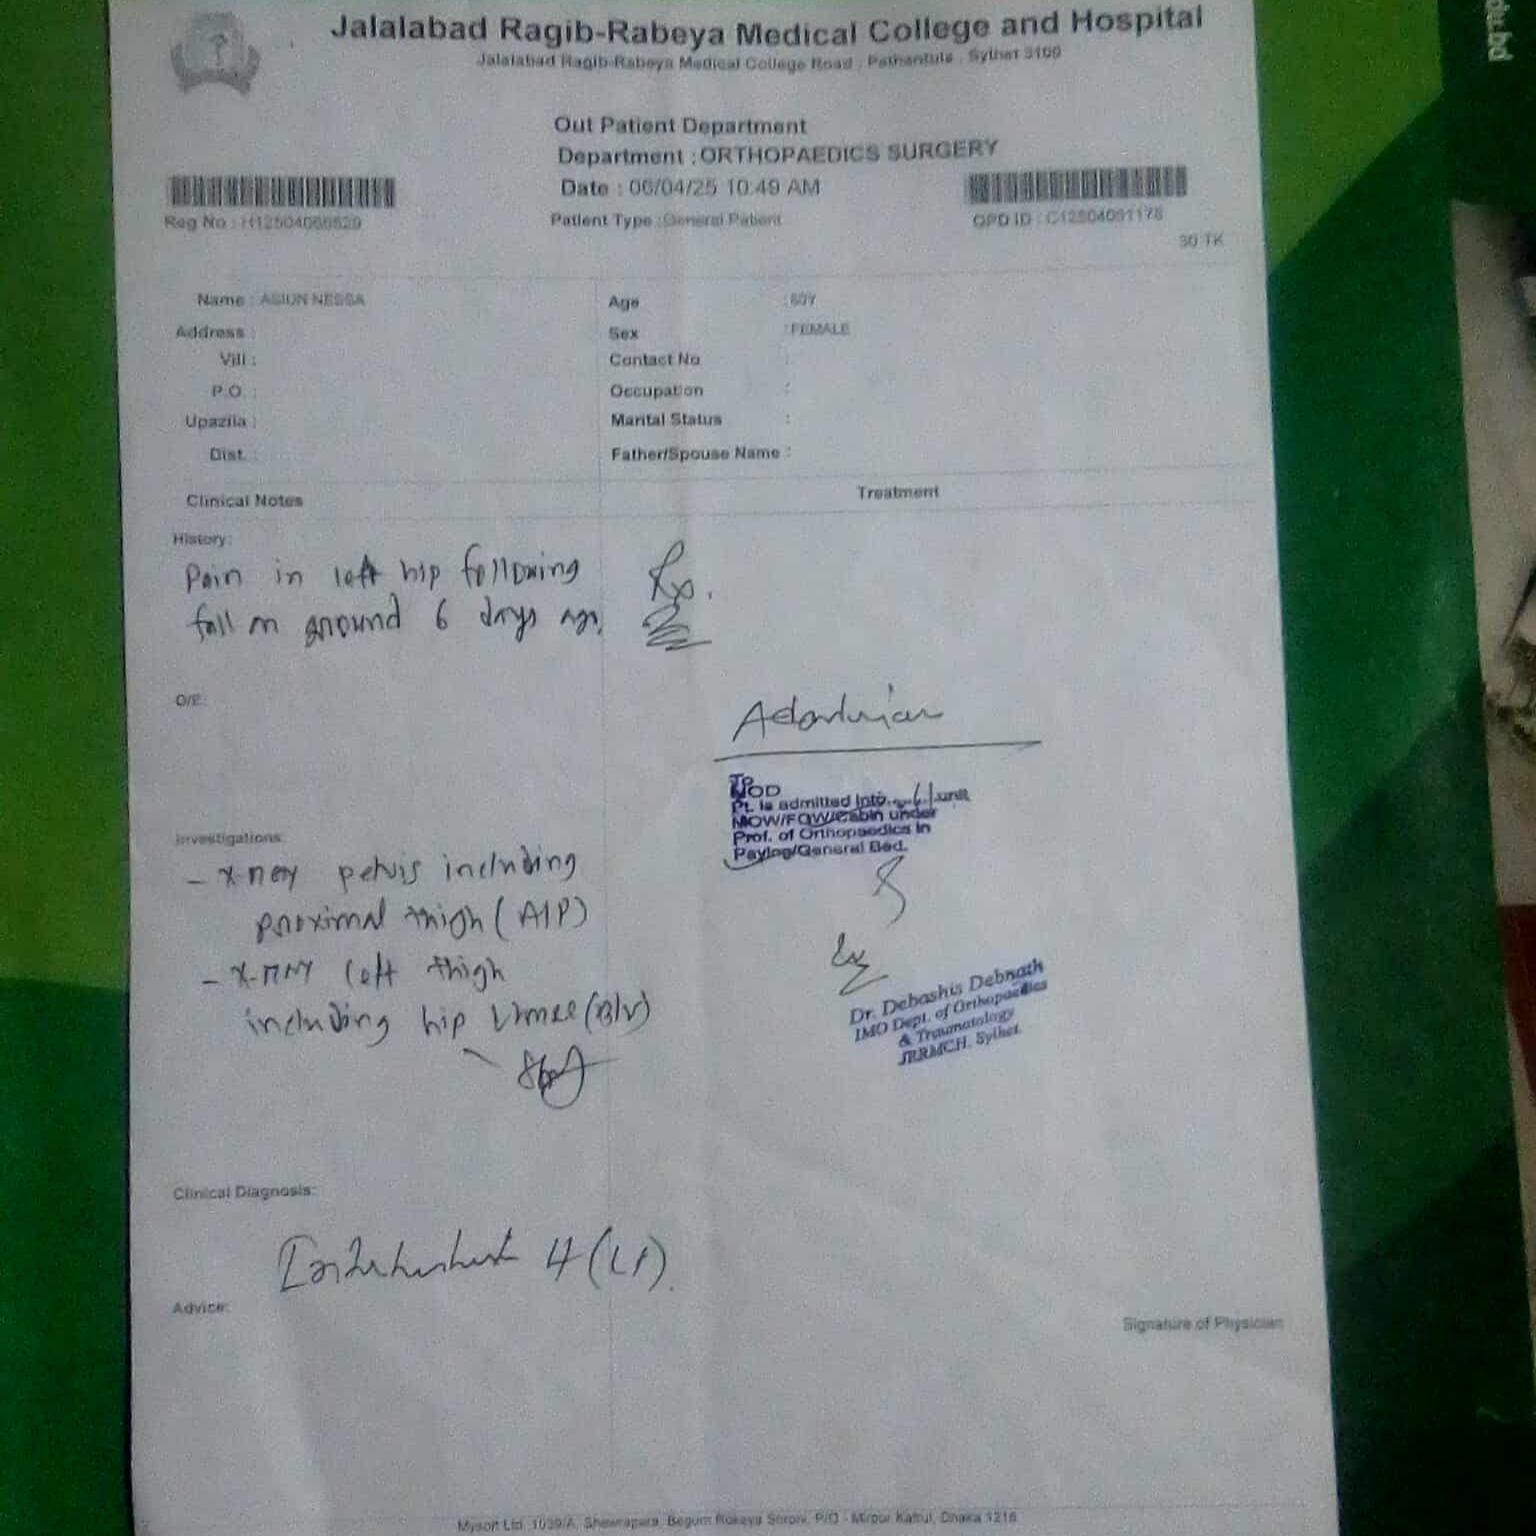 Jalalabad Ragib-Rabeya Medical College and Hospital
Jalalabad Ragib-Rabeya Medical College Road, Pathantula, Sylhet 3100
Out Patient Department
Department : ORTHOPAEDICS SURGERY
Date : 06/04/25 10:49 AM
Reg No :
Patient Type : General Patient
OPD ID :
30 TK
Name : ASIUN NESSA
Age : 60Y
Address :
Sex : FEMALE
Vill :
Contact No :
P.O. :
Occupation :
Upazila :
Marital Status :
Dist. :
Father/Spouse Name :
Clinical Notes
Treatment
History:
Pain in left hip following
fall on ground 6 days ago.
Rx.
O/E:
TP
MOD
Pt. is admitted into unit
MOW/FOW/Cabin under
Prof. of Orthopaedics in
Paying/General Bed.
Investigations:
- X-ray pelvis including
proximal thigh (A/P)
- X-ray left thigh
including hip knee (B/V)
Dr. Debashis Debnath
IMO Dept. of Orthopaedics
& Traumatology
JRRMCH, Sylhet.
Clinical Diagnosis:
# (Lt).
Advice:
Signature of Physician
Mysoft Ltd, 1039/A, Shewrapara, Begum Rokeya Soroni, P/O - Mirpur Kafrul, Dhaka 1216
du.bd